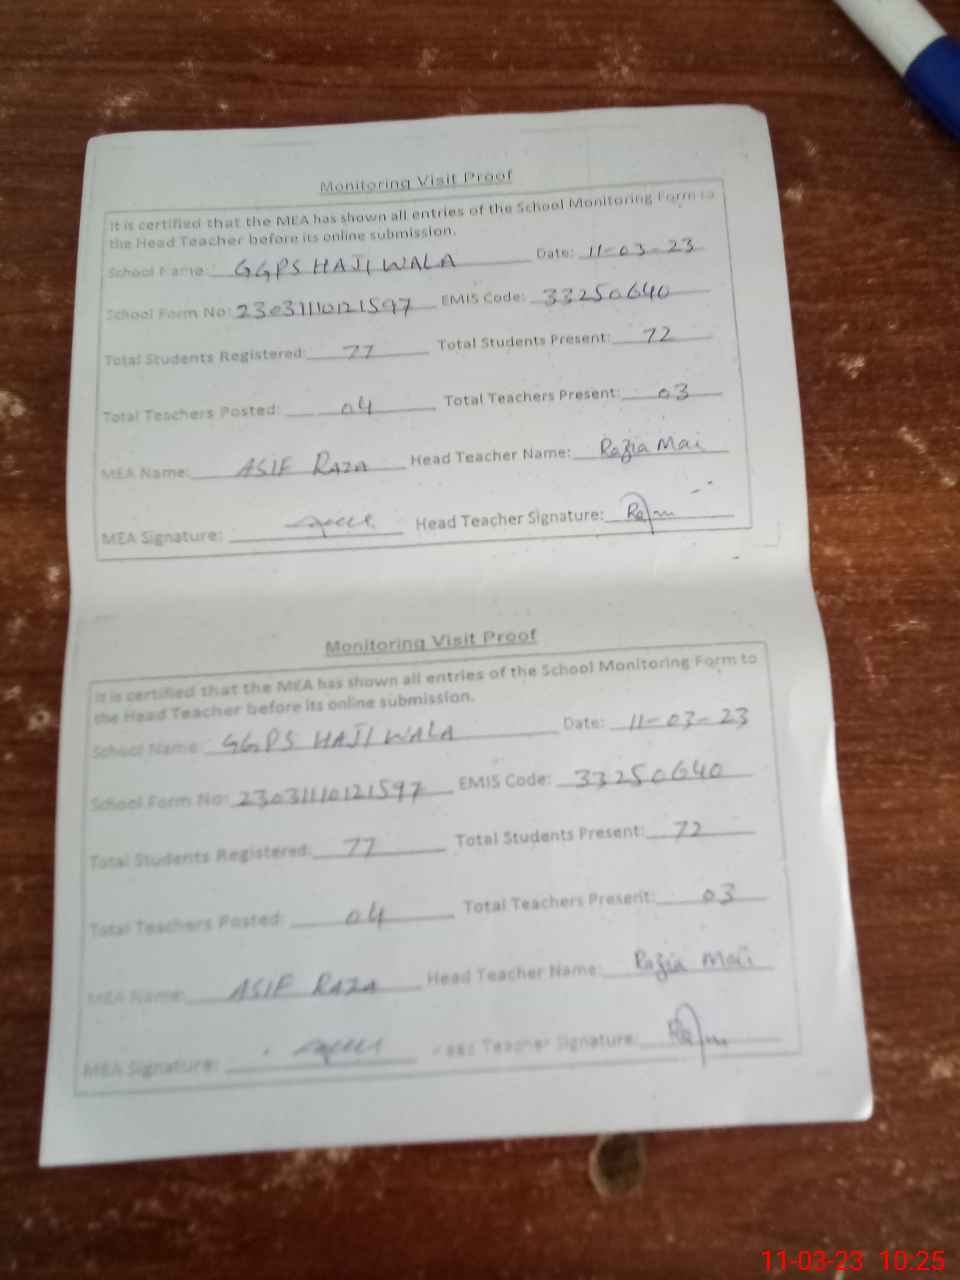 Monitoring Visit Proof
It is certified that the MEA has shown all entries of the School Monitoring Form to
the Head Teacher before its online submission.
School Name: GGPS HAJI WALA Date: 11-03-23
School Form No: 23031110121597 EMIS Code: 33250640
Total Students Registered: 77 Total Students Present: 72
Total Teachers Posted: 04 Total Teachers Present: 03
MEA Name: ASIF RAZA Head Teacher Name: Razia Mai
MEA Signature: Head Teacher Signature:
Monitoring Visit Proof
It is certified that the MEA has shown all entries of the School Monitoring Form to
the Head Teacher before its online submission.
School Name: GGPS HAJI WALA Date: 11-03-23
School Form No: 23031110121597 EMIS Code: 33250640
Total Students Registered: 77 Total Students Present: 72
Total Teachers Posted: 04 Total Teachers Present: 03
MEA Name: ASIF RAZA Head Teacher Name: Razia Mai
MEA Signature: Head Teacher Signature:
11-03-23 10:25